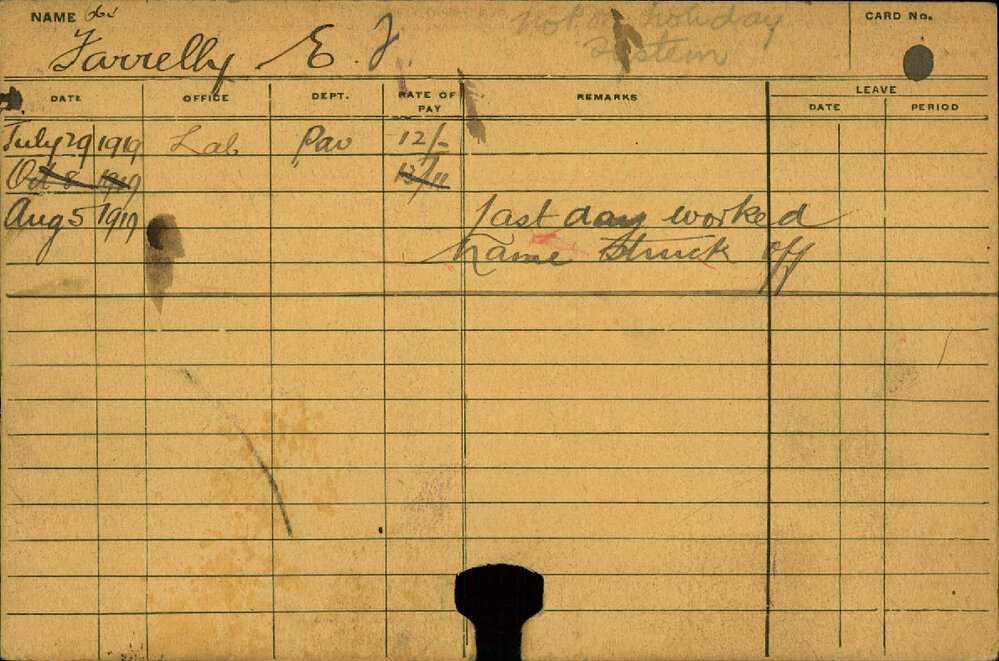 NAME
Farrelly E. J.
not on holiday system
CARD No.
DATE OFFICE DEPT. RATE OF PAY REMARKS LEAVE DATE PERIOD
July 29 1919 Lab Pav 12/-
Oct 8 1919 13/11
Aug 5 1919 last day worked
Name struck off